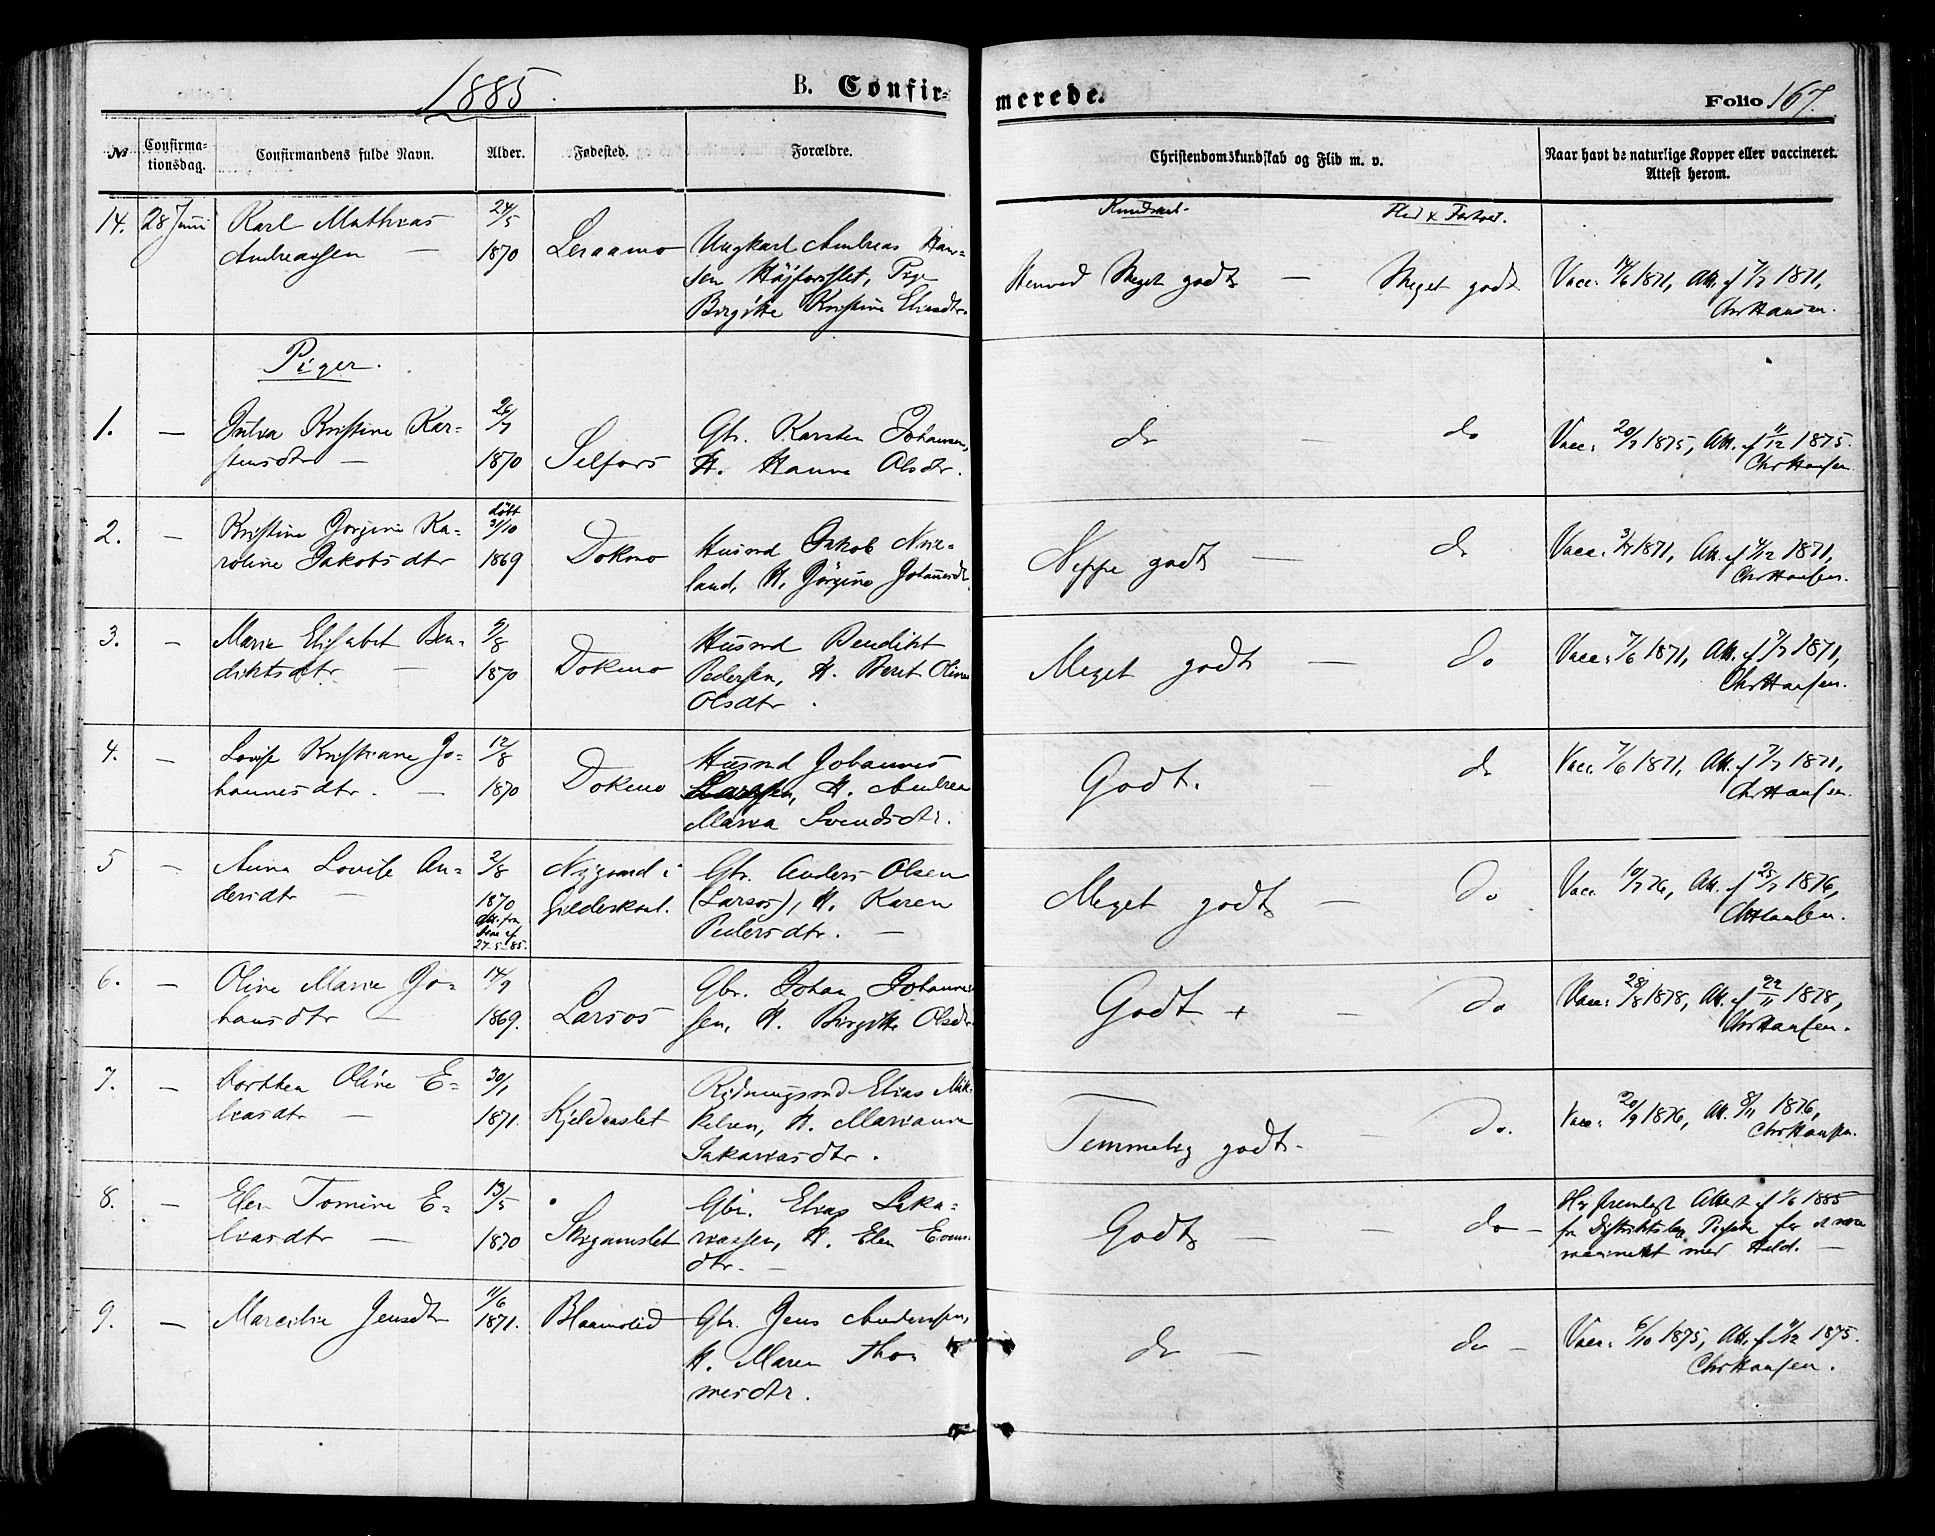 1885.
B. Confirmerede.
Folio 167.
№
Confirma-
tionsdag.
Confirmandens fulde Navn.
Alder.
Fødested.
Forældre.
Christendomskundskab og Flid m. v.
Naar havt de naturlige Kopper eller vaccineret.
Attest herom.
Kundskab. Flid & Forhold.
14. 28 Juni Karl Mathias
Andreassen —
24/5
1870
Leraamo
Ungkarl Andreas Han-
sen Højforsslet, Pige
Birgitte Kristine Eliasdtr.
Henved Meget godt — Meget godt
Vacc. 14/6 1871, Att. f 7/7 1871,
Chr Hansen.
Piger.
1. — Julia Kristine Kar-
stensdtr —
26/7
1870
Selfors
Gbr. Karsten Johansen,
H. Hanna Olsdtr.
do do
Vacc. 20/7 1875, Att. f 11/12 1875.
Chr Hansen
2. — Kristine Jørgine Ka-
roline Jakobsdtr
døbt
31/10
1869
Dokmo
Husmd Jakob Nix-
land, H. Jørgine Johannesdt.
Neppe godt — do
Vacc. 3/7 1871, Att. f 4/12 1871,
Chr Hansen.
3. — Marie Elisabet Ben-
diktsdtr —
9/8
1870
Dokmo
Husmd Bendikt
Pedersen, H. Berit Oline
Olsdtr.
Meget godt — do
Vacc. 7/6 1871, Att. f 7/7 1871,
Chr Hansen.
4. — Lovise Kristiane Jo-
hannesdtr. —
12/8
1870
Dokmo
Husmd Johannes
Larssen, H. Andrea
Maria Svendsdtr.
Godt. — do
Vacc. 7/6 1871, Att. f 7/7 1871,
Chr Hansen.
5 — Anna Lovise An-
dersdtr —
2/8
1870
Att. fra
27-5-85.
Nygaard i
Gildeskaal.
Gbr. Anders Olsen
(Larsos), H. Karen
Pedersdtr. —
Meget godt — do
Vacc. 10/7 76, Att. f 25/7 1876,
Chr Hansen.
6. — Oline Marie Jo-
hansdtr —
14/9
1869.
Larsos
Gbr. Johan Johanne-
sen, H. Birgitte Olsdtr
Godt + — do
Vacc. 28/8 1878, Att. f 22/11 1878,
Chr Hansen.
7. — Dorthea Oline E-
liasdtr —
30/1
1871.
Kjeldaaslet
Rydningsmd Elias Mik-
kelsen, H. Marianne
Sakariasdtr.
Temmelig godt — do.
Vacc. 20/9 1876, Att. 8/11 1876,
Chr Hansen.
8. — Elen Tomine E-
liasdtr —
13/5
1870
Skugamslet
Gbr. Elias Saka-
riassen, H. Elen Evens-
dtr. —
Godt — do —
Har fremlagt Attest af 1/6 1885
fra Distriktslæge for at være
vaccineret med Held. —
9. — Marcelie Jensdtr
11/6
1871.
Blaamolid
Gbr. Jens Anderssen,
H. Maren Tho-
mesdtr.
do — do —
Vacc. 6/10 1875, Att. f 11/12 1875.
Chr Hansen.